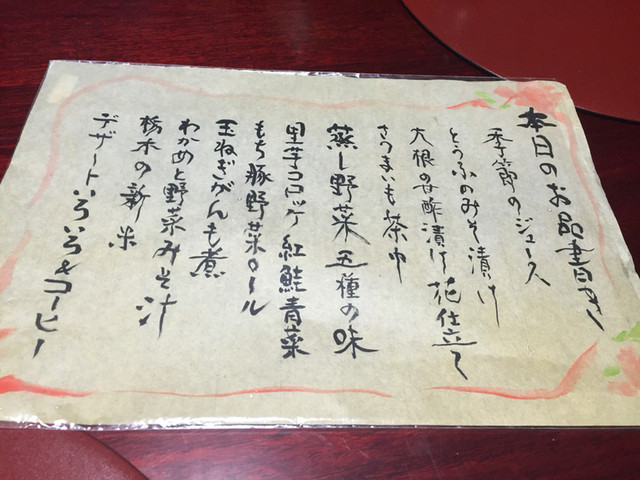 本日のお品書き
季節のジュース
とうふのみそ漬け
大根の甘酢漬け花仕立て
さつまいも茶巾
蒸し野菜五種の味
里芋コロッケ 紅鮭青菜
もち豚野菜ロール
玉ねぎがんも煮
わかめと野菜みそ汁
栃木の新米
デザートいろいろ&コーヒー